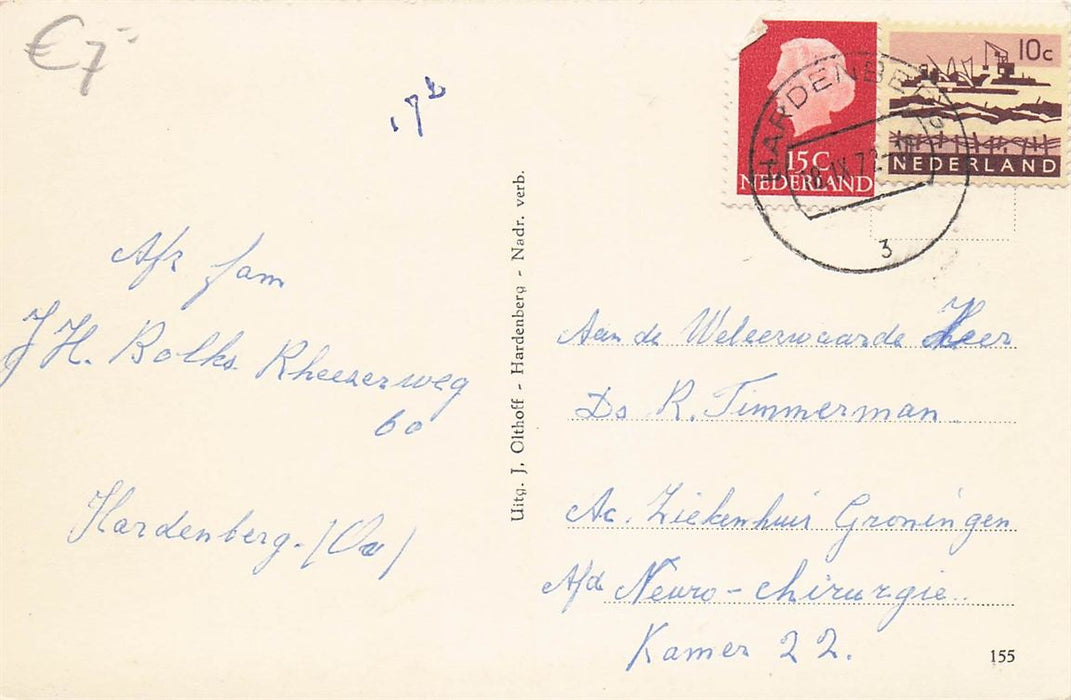 €7,-
17b
Afz fam
J H. Bolks Rheezerweg
60
Hardenberg. (Ov)
Uitg. J. Olthoff - Hardenberg - Nadr. verb.
15C
NEDERLAND
10c
NEDERLAND
HARDENBERG
18.IX.72
3
Aan de Weleerwaarde Heer
Ds R. Timmerman
Ac. Ziekenhuis Groningen
Afd Neuro-chirurgie.
Kamer 22.
155